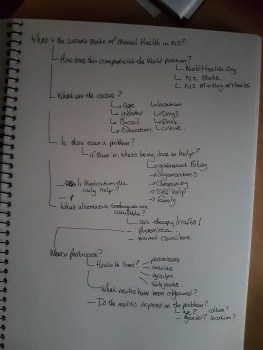 What is the current state of Mental Health in NZ?
How does this compare with the World position?
World Health Org
NZ Stats
NZ Ministry of Health
What are the causes?
Age
Location
Gender
Drugs
Social
Drink
Education
Culture
Is there even a problem?
If there is, what's being done to help?
Government Policy
Organisations
Community
Self Help
Family
Is Medication the only Help?
What alternative techniques are available?
Art therapy/crafts/
Phototherapy
trained councilors
What is Phototherapy?
How is it used?
processes
groups
What results have been obtained?
Do the results depend on the problem?
age?
culture?
gender?
location?